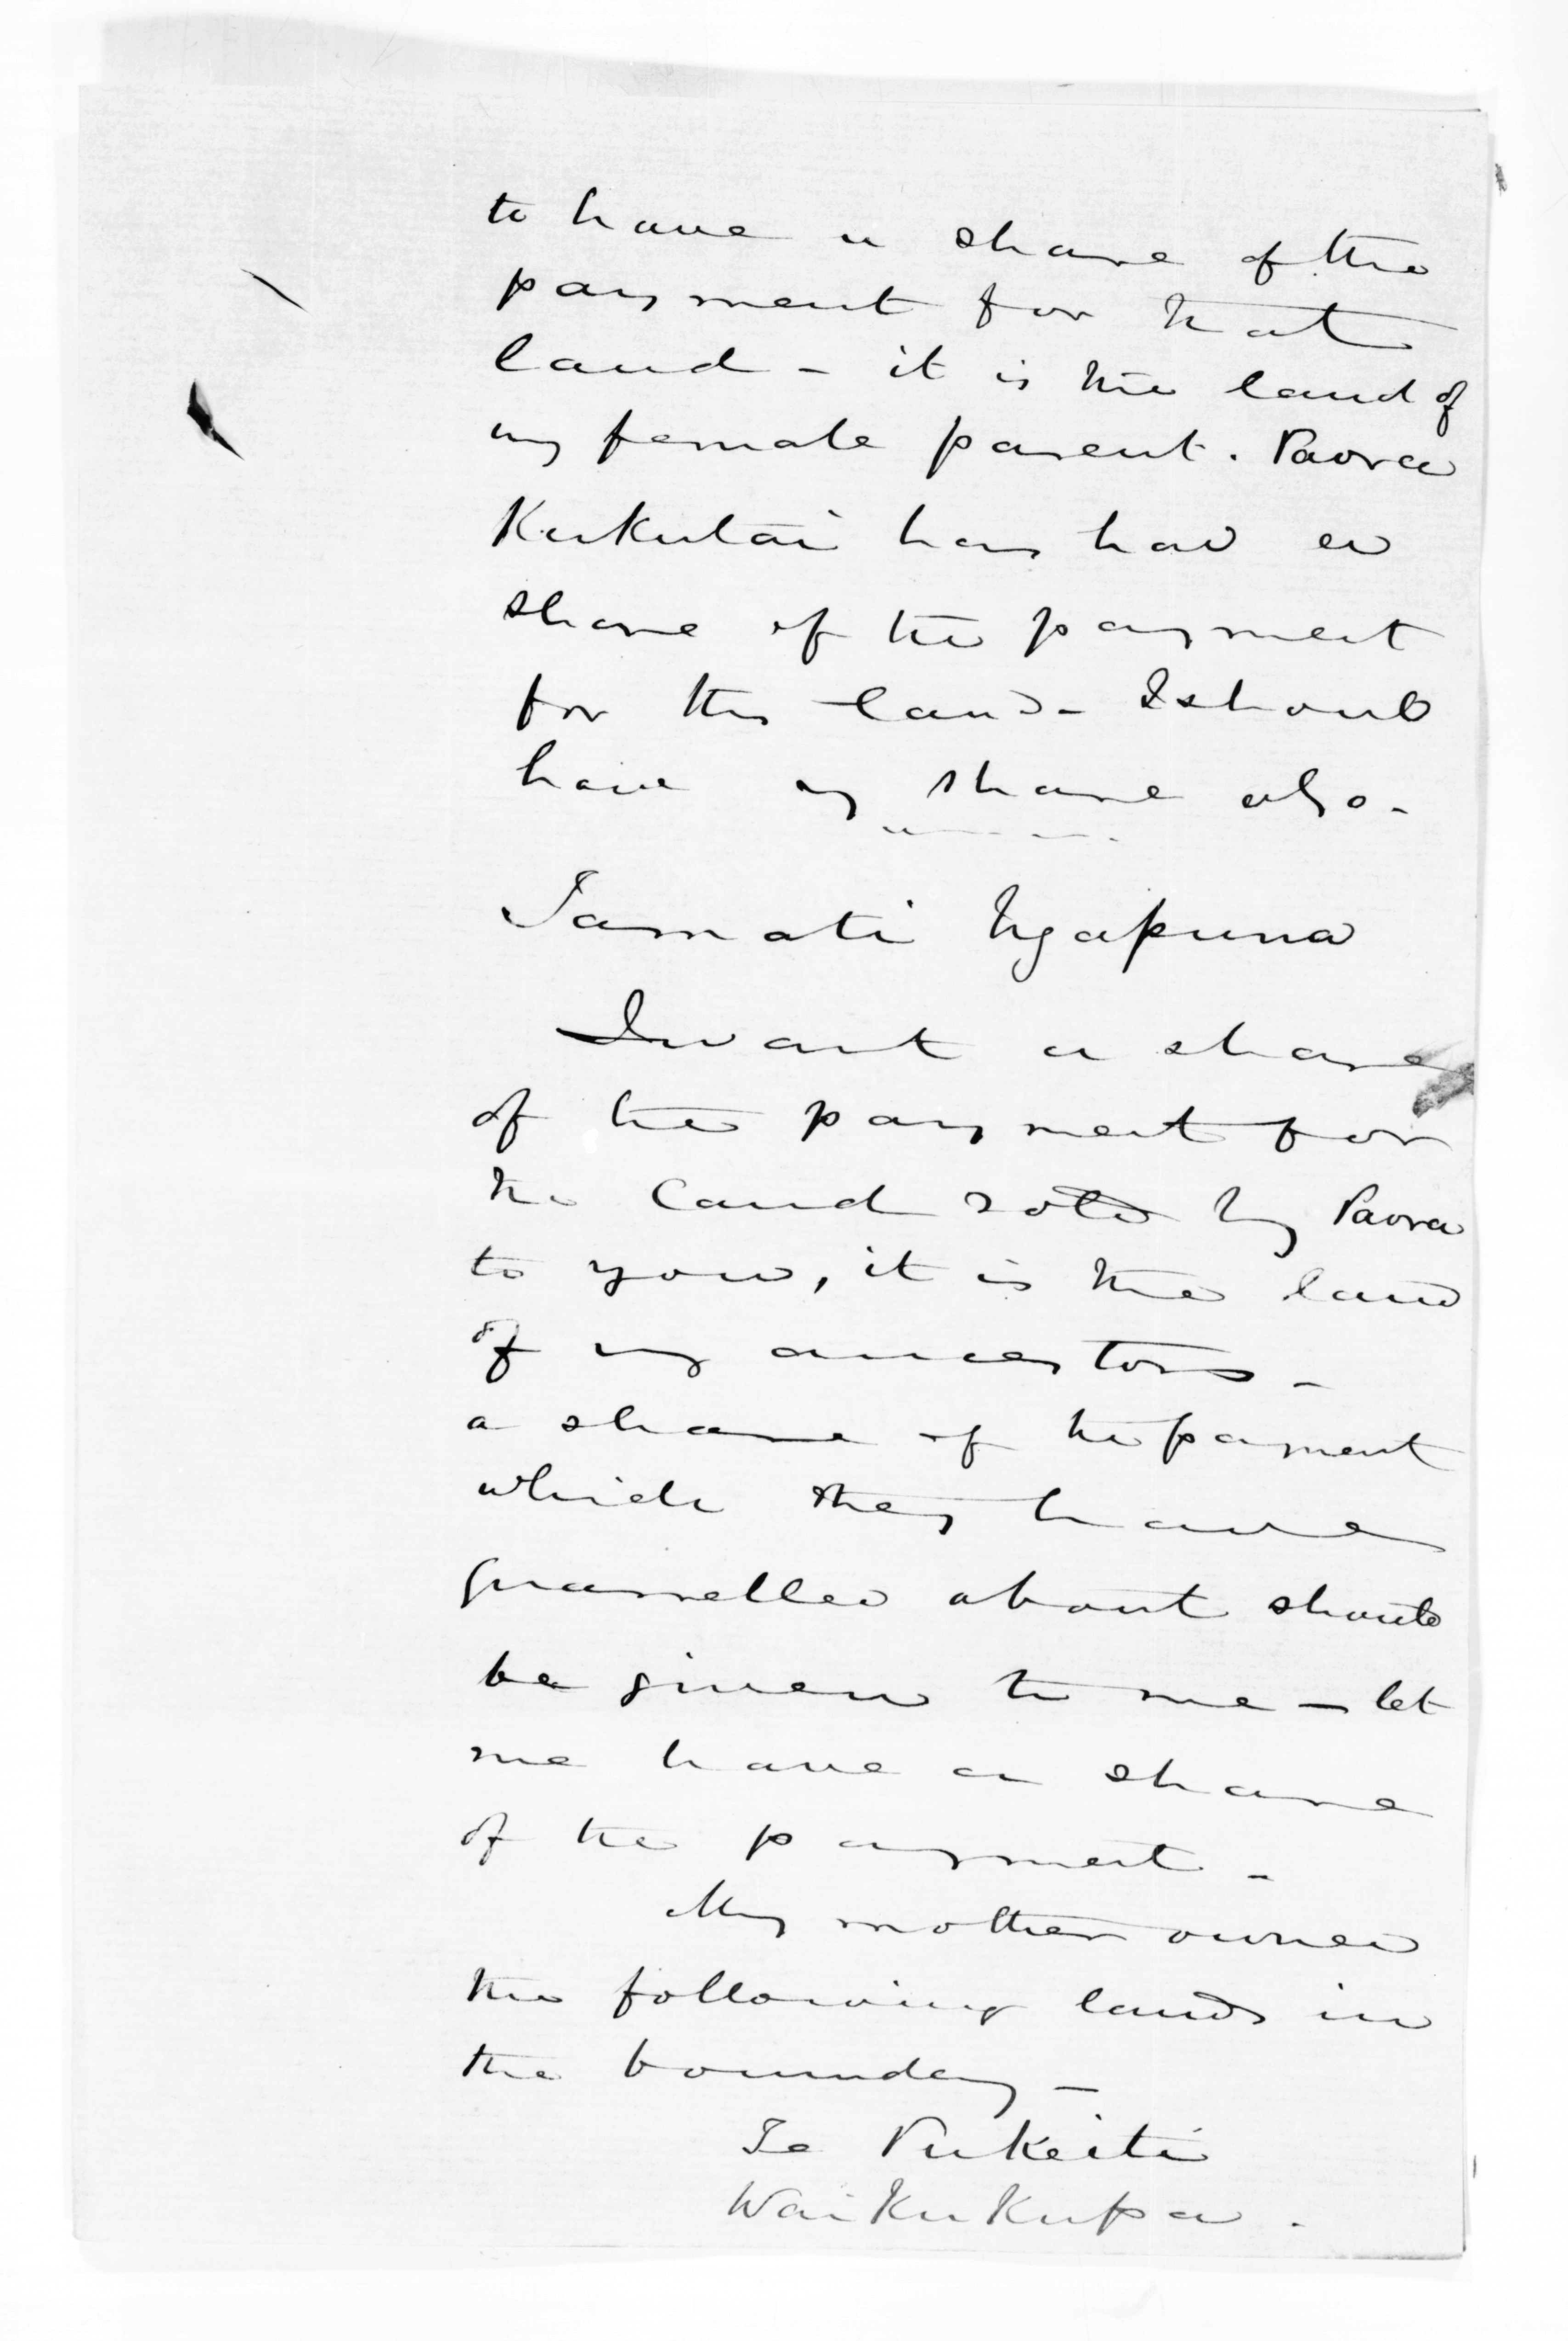 to have a share of the
payment for that
land - it is the land of
my female parent. Paora
Kukutai has had a
share of the payment
for the land - I should
have my share also -
Tamati Ngapuna
I want a share
of the payment for
the land sold by Paora
to you, it is the land
of my ancestors -
a share of the payment
which they have
quarrelled about should
be given to me - let
me have a share
of the payment -
My mother owned
the following lands in
the boundary -
Te Pukeiti
Waikukupa.